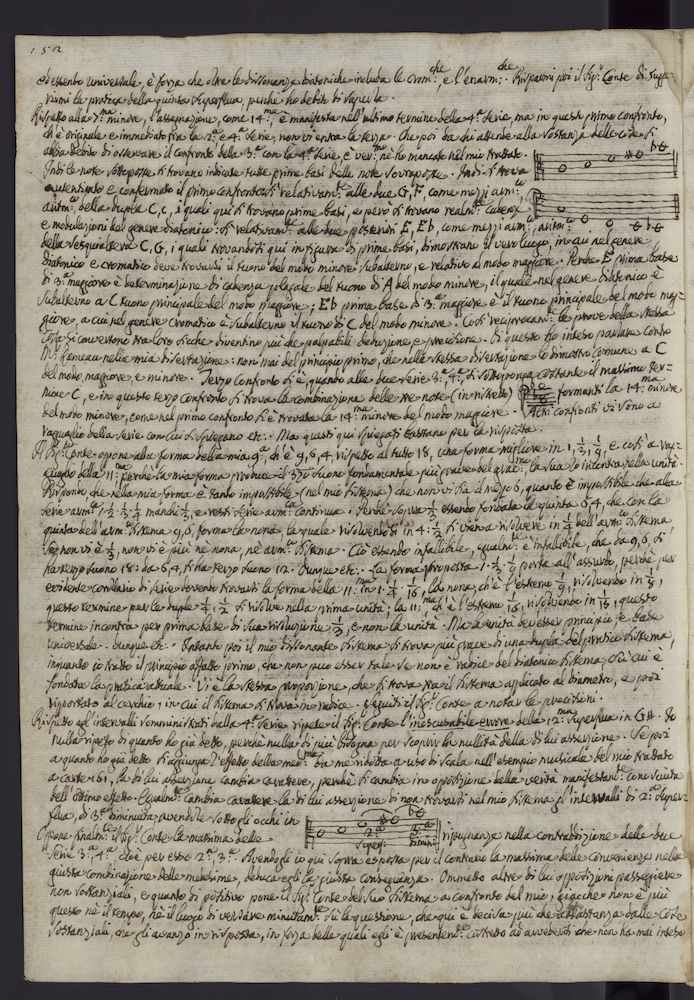 152
ed essendo universale, è forza che oltre le dissonanze diatoniche includa le crom:che, e l'enarm:che. Risparmi poi il Sig:r Conte di sugge-
rirmi la pratica della quinta superflua, perchè ho debito di saperla.
Rispetto alla 7:ma minore, l'assegnazione, come 14:ma, è manifesta nell'ultimo termine della 4:a serie, ma in questo primo confronto,
ch'è originale e immediato fra la 2:a e 4:a serie, non vi entra la terza. Che poi da chi attende alla sostanza delle cose si
abbia debito di osservare il confronto della 3:a con la 4:a serie, è ver:mo nè ho mancato nel mio trattato.
Indi le note sottoposte si trovano indicate tutte prime basi delle note sovraposte. Indi si trova
autenticato e confermato il primo confronto: sì relativam:te alle due G, F come mezzi arm:co
aritm:co della dupla C, c, i quali qui si trovano prime basi, e però si trovano realm:te cadenze
e modulazioni del genere diatonico: sì relativam:te alle due posteriori E, Eb, come mezzi arm:co, aritm:co
della sesquialtera C, G, i quali trovandosi qui in figura di prime basi, dimostrano il vero luogo, in cui nel genere
diatonico e cromatico deve trovarsi il tuono del modo minore subalterno, e relativo al modo maggiore. Perchè E prima base
di 3:a maggiore è determinazione di cadenza plagale del tuono di A del modo minore, il quale nel genere diatonico è
subalterno a C tuono principale del modo maggiore; Eb prima base di 3:a maggiore è il tuono principale del modo mag-
giore, a cui nel genere cromatico è subalterno il tuono di C del modo minore. Così reciprocam:te le prove della stessa
cosa si convertono tra loro sicchè diventino più che palpabili deduzione, e precisione. Di questo ho inteso parlare contro
M:r Rameau nella mia dissertazione: non mai del principio primo, che nella stessa dissertazione lo dimostro comune a C
del modo maggiore, e minore. Terzo confronto si è quando alle due serie 3:a, 4:a, si sottoponga costante il massimo ter-
mine C, e in questo terzo confronto si trova la combinazione delle tre note (in ristretto) formanti la 14:ma minore
del modo minore, come nel primo confronto si è trovata la 14:ma minore del modo maggiore. Altri confronti vi sono a
ragguaglio della serie con cui si spiegano etc: Ma questi qui spiegati bastano per la risposta.
Il Sig:r Conte oppone alla forma della mia 9:a, ch'è 9, 6, 4, rispetto al tutto 18, una forma migliore in 1, 1/3, 1/9, e così a rag-
guaglio della 11:ma perchè la mia forma produce il 3:zo suono fondamentale più grave del grave: la sua lo incontra nella unità.
Rispondo, che nella mia forma è tanto impossibile (nel mio sistema) che non vi sia il mezzo 6, quanto è impossibile che alla
quinta dell'arm:co sistema 9, 6, forma la nona, la quale risolvendosi in 4
Se non vi è 1/6, non vi è più nè nona, nè arm:co sistema. Ciò essendo infallibile, equalm:te è infallibile, che da 9, 6 si
ha terzo suono 18: da 6, 4, si ha terzo suono 12. Dunque etc:
questo termine
termine incontra per prima base di sua risoluzione 1/3, e non la unità. Ma la unità dev'esser principio, e base
universale. Dunque etc. Intanto poi il mio dissonante sistema si trova più grave di una dupla del pratico sistema,
inquanto io tratto il principio affatto primo, che non può esser tale se non è radice del diatonico sistema, su cui è
fondata la pratica attuale. Vi è la stessa proporzione, che si trova tra il sistema applicato al diametro, e poi
riportato al cerchio, in cui il sistema si trova in radice. Seguiti il Sig:r Conte a notar le precisioni.
Rispetto agl'intervalli somministrati dalla 4:a serie ripete il Sig:r Conte l'inescusabile errore della 12:ma superflua in G#. Io
nulla ripeto di quanto ho già detto, perchè nulla di più bisogna per scoprir la nullità della di lui asserzione. Se poi
a quanto ho già detto si aggiunga l'effetto della med:ma sia me ridotta a uso di scala nell'esempio musicale del mio trattato
a carte 161, la di lui asserzione cambia carattere, perchè si cambia in opposizione della verità manifestam:te conosciuta
dell'ottimo effetto. Equalm:te cambia carattere la di lui asserzione di non trovarsi nel mio sistema gl'intervalli di 2:a super-
flua, di 3:a diminuita avendole sotto gli occhi in ripugnanza nella contraddizione delle due
superf: dimin:
Oppone finalm:te il Sig:r Conte la massima delle
serie 3:a, 4:a, cioè per esso 2:a, 3:a. Avendogli io qui sopra esposta per il contrario la massima delle convenienze nella
giusta combinazione delle medesime, deduca egli la giusta conseguenza. Ommetto altre di lui opposizioni passeggiere
non sostanziali, e quanto di positivo pone il Sig:r Conte del suo sistema a confronto del mio, giacchè non è più
questo nè il tempo, nè il luogo di versare minutam:te su la questione, che qui è decisa più che abbastanza dalle cose
sostanziali, che gli avanzo in risposta, in forza delle quali egli è presentem:te costretto ad avvedersi che non ha mai inteso